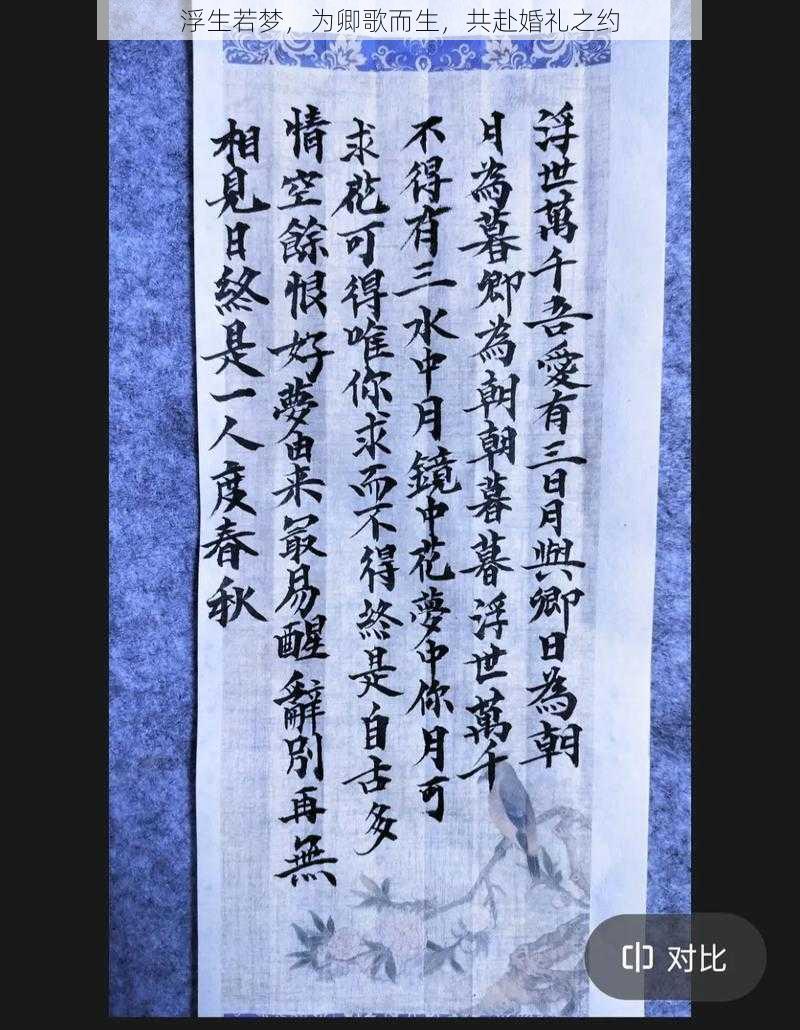 浮生若梦，为卿歌而生，共赴婚礼之约
浮世萬千吾愛有三日月與卿日為朝
日為暮卿為朝朝暮暮浮世萬千
不得有三水中月鏡中花夢中你月可
求花可得唯你求而不得終是自古多
情空餘恨好夢由来最易醒辭別再無
相見日終是一人度春秋
对比